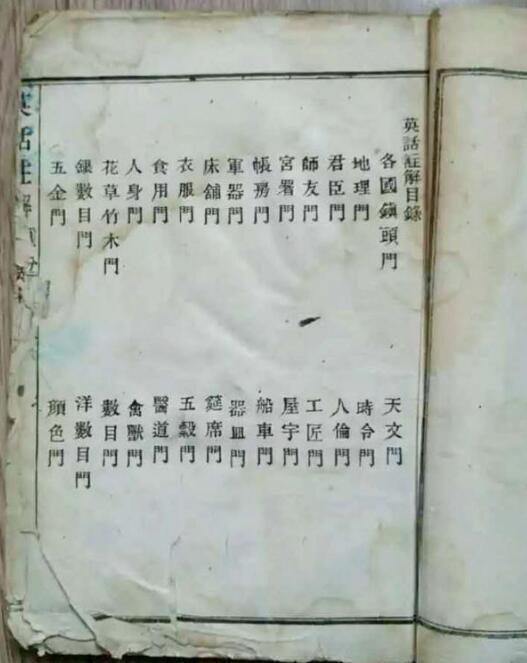 英話註解目錄
各國鎮頭門 天文門
地理門 時令門
君臣門 人倫門
師友門 工匠門
宮署門 屋宇門
帳房門 船車門
軍器門 器皿門
床舖門 筵席門
衣服門 五穀門
食用門 醫道門
人身門 禽獸門
花草竹木門 數目門
銀數目門 洋數目門
五金門 顏色門
英話註解